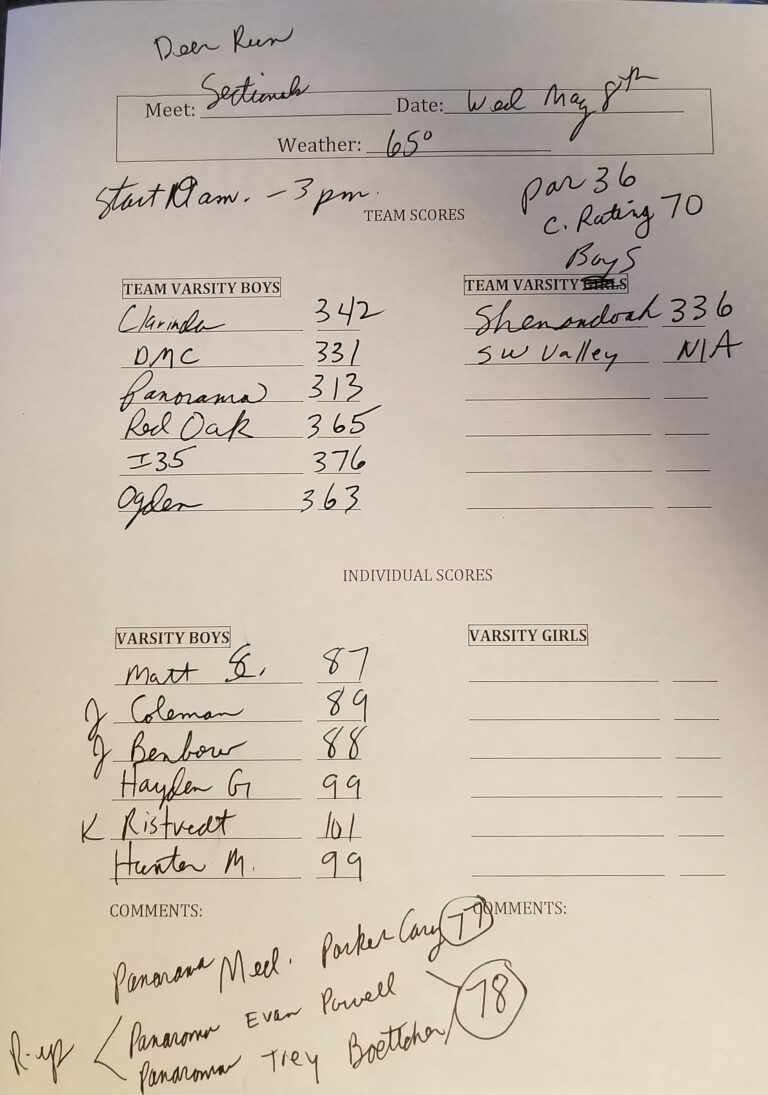 Deer Run
Meet: Sectionals Date: Wed May 8th
Weather: 65°
Start 10 am. - 3 pm.
TEAM SCORES
Par 36
C. Rating 70
Boys
TEAM VARSITY BOYS
Clarinda 342
DMC 331
Panorama 313
Red Oak 365
I35 376
Ogden 363
TEAM VARSITY GIRLS
Shenandoah 336
SW Valley N/A
INDIVIDUAL SCORES
VARSITY BOYS
Matt 87
J Coleman 89
J Benbow 88
Hayden G 99
K Ristvedt 101
Hunter M. 99
VARSITY GIRLS
COMMENTS:
COMMENTS:
Panorama Med. Parker Cary 77
R-up
Panaroma Evan Powell
Panaroma Trey Boettcher 78